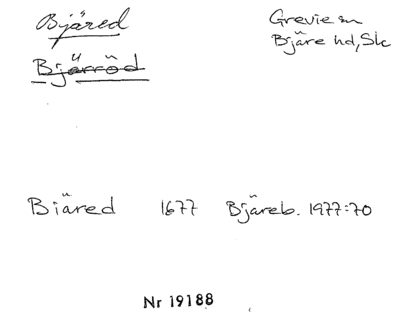 Bjäred
Grevie sn
Bjärröd
Bjäre hd, Sk
Biäred 1677 Bjäreb. 1977:70
Nr 19188